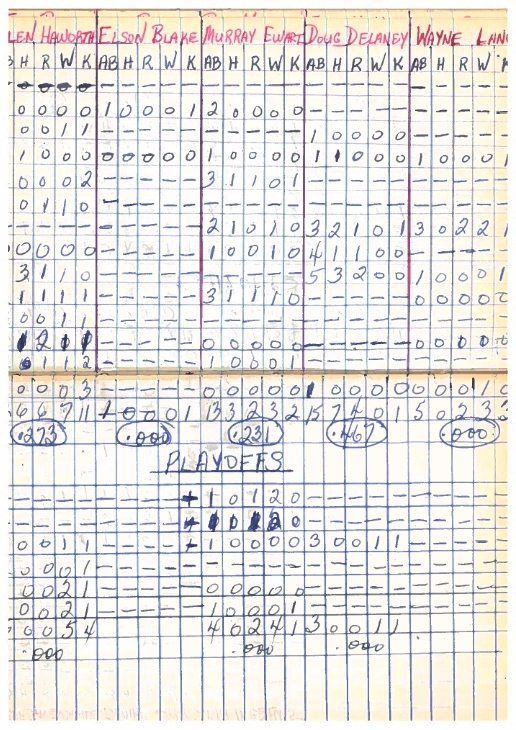 LEN HAWORTH ELSON BLAKE MURRAY EWART DOUG DELANEY WAYNE LANG
H R W K AB H R W K AB H R W K AB H R W K AB H R W
0 0 0 0 1 0 0 0 1 2 0 0 0 0 - - - - - - - - -
0 0 1 1 - - - - - - - - - - 1 0 0 0 0 - - - -
1 0 0 0 0 0 0 0 0 1 0 0 0 0 1 1 0 0 0 1 0 0 0 1
0 0 0 2 - - - - - 3 1 1 0 1 - - - - - - - - -
0 1 1 0 - - - - - - - - - - - - - - - - - - -
- - - - - - - - - 2 1 0 1 0 3 2 1 0 1 3 0 2 2 1
0 0 0 0 - - - - - 1 0 0 1 0 4 1 1 0 0 - - - -
3 1 1 0 - - - - - - - - - - 5 3 2 0 0 1 0 0 0 1
1 1 1 1 - - - - - 3 1 1 1 0 - - - - - 0 0 0 0 0
0 0 1 1 - - - - - - - - - - - - - - - - - - -
- - - - - 0 0 0 0 0 - - - - - 0 0 0 0 0
0 1 1 2 - - - - - 1 0 0 0 1 - - - - - - - - -
0 0 0 3 - - - - - 0 0 0 0 0 1 0 0 0 0 0 0 0 1 0
6 6 7 11 1 0 0 0 1 13 3 2 3 2 15 7 4 0 1 5 0 2 3 3
.273 .000 .231 .467 .000
PLAYOFFS
- - - - - - - - + 1 0 1 2 0 - - - - - - - - -
0 0 1 1 - - - - + 1 0 0 0 0 3 0 0 1 1 - - - -
0 0 0 1 - - - - - - - - - - - - - - - - - - -
0 0 2 1 - - - - - 0 0 0 0 0 - - - - - - - - -
0 0 2 1 1 0 0 0 1 - - - - - - - - -
0 0 5 4 4 0 2 4 1 3 0 0 1 1
.000 .000 .000